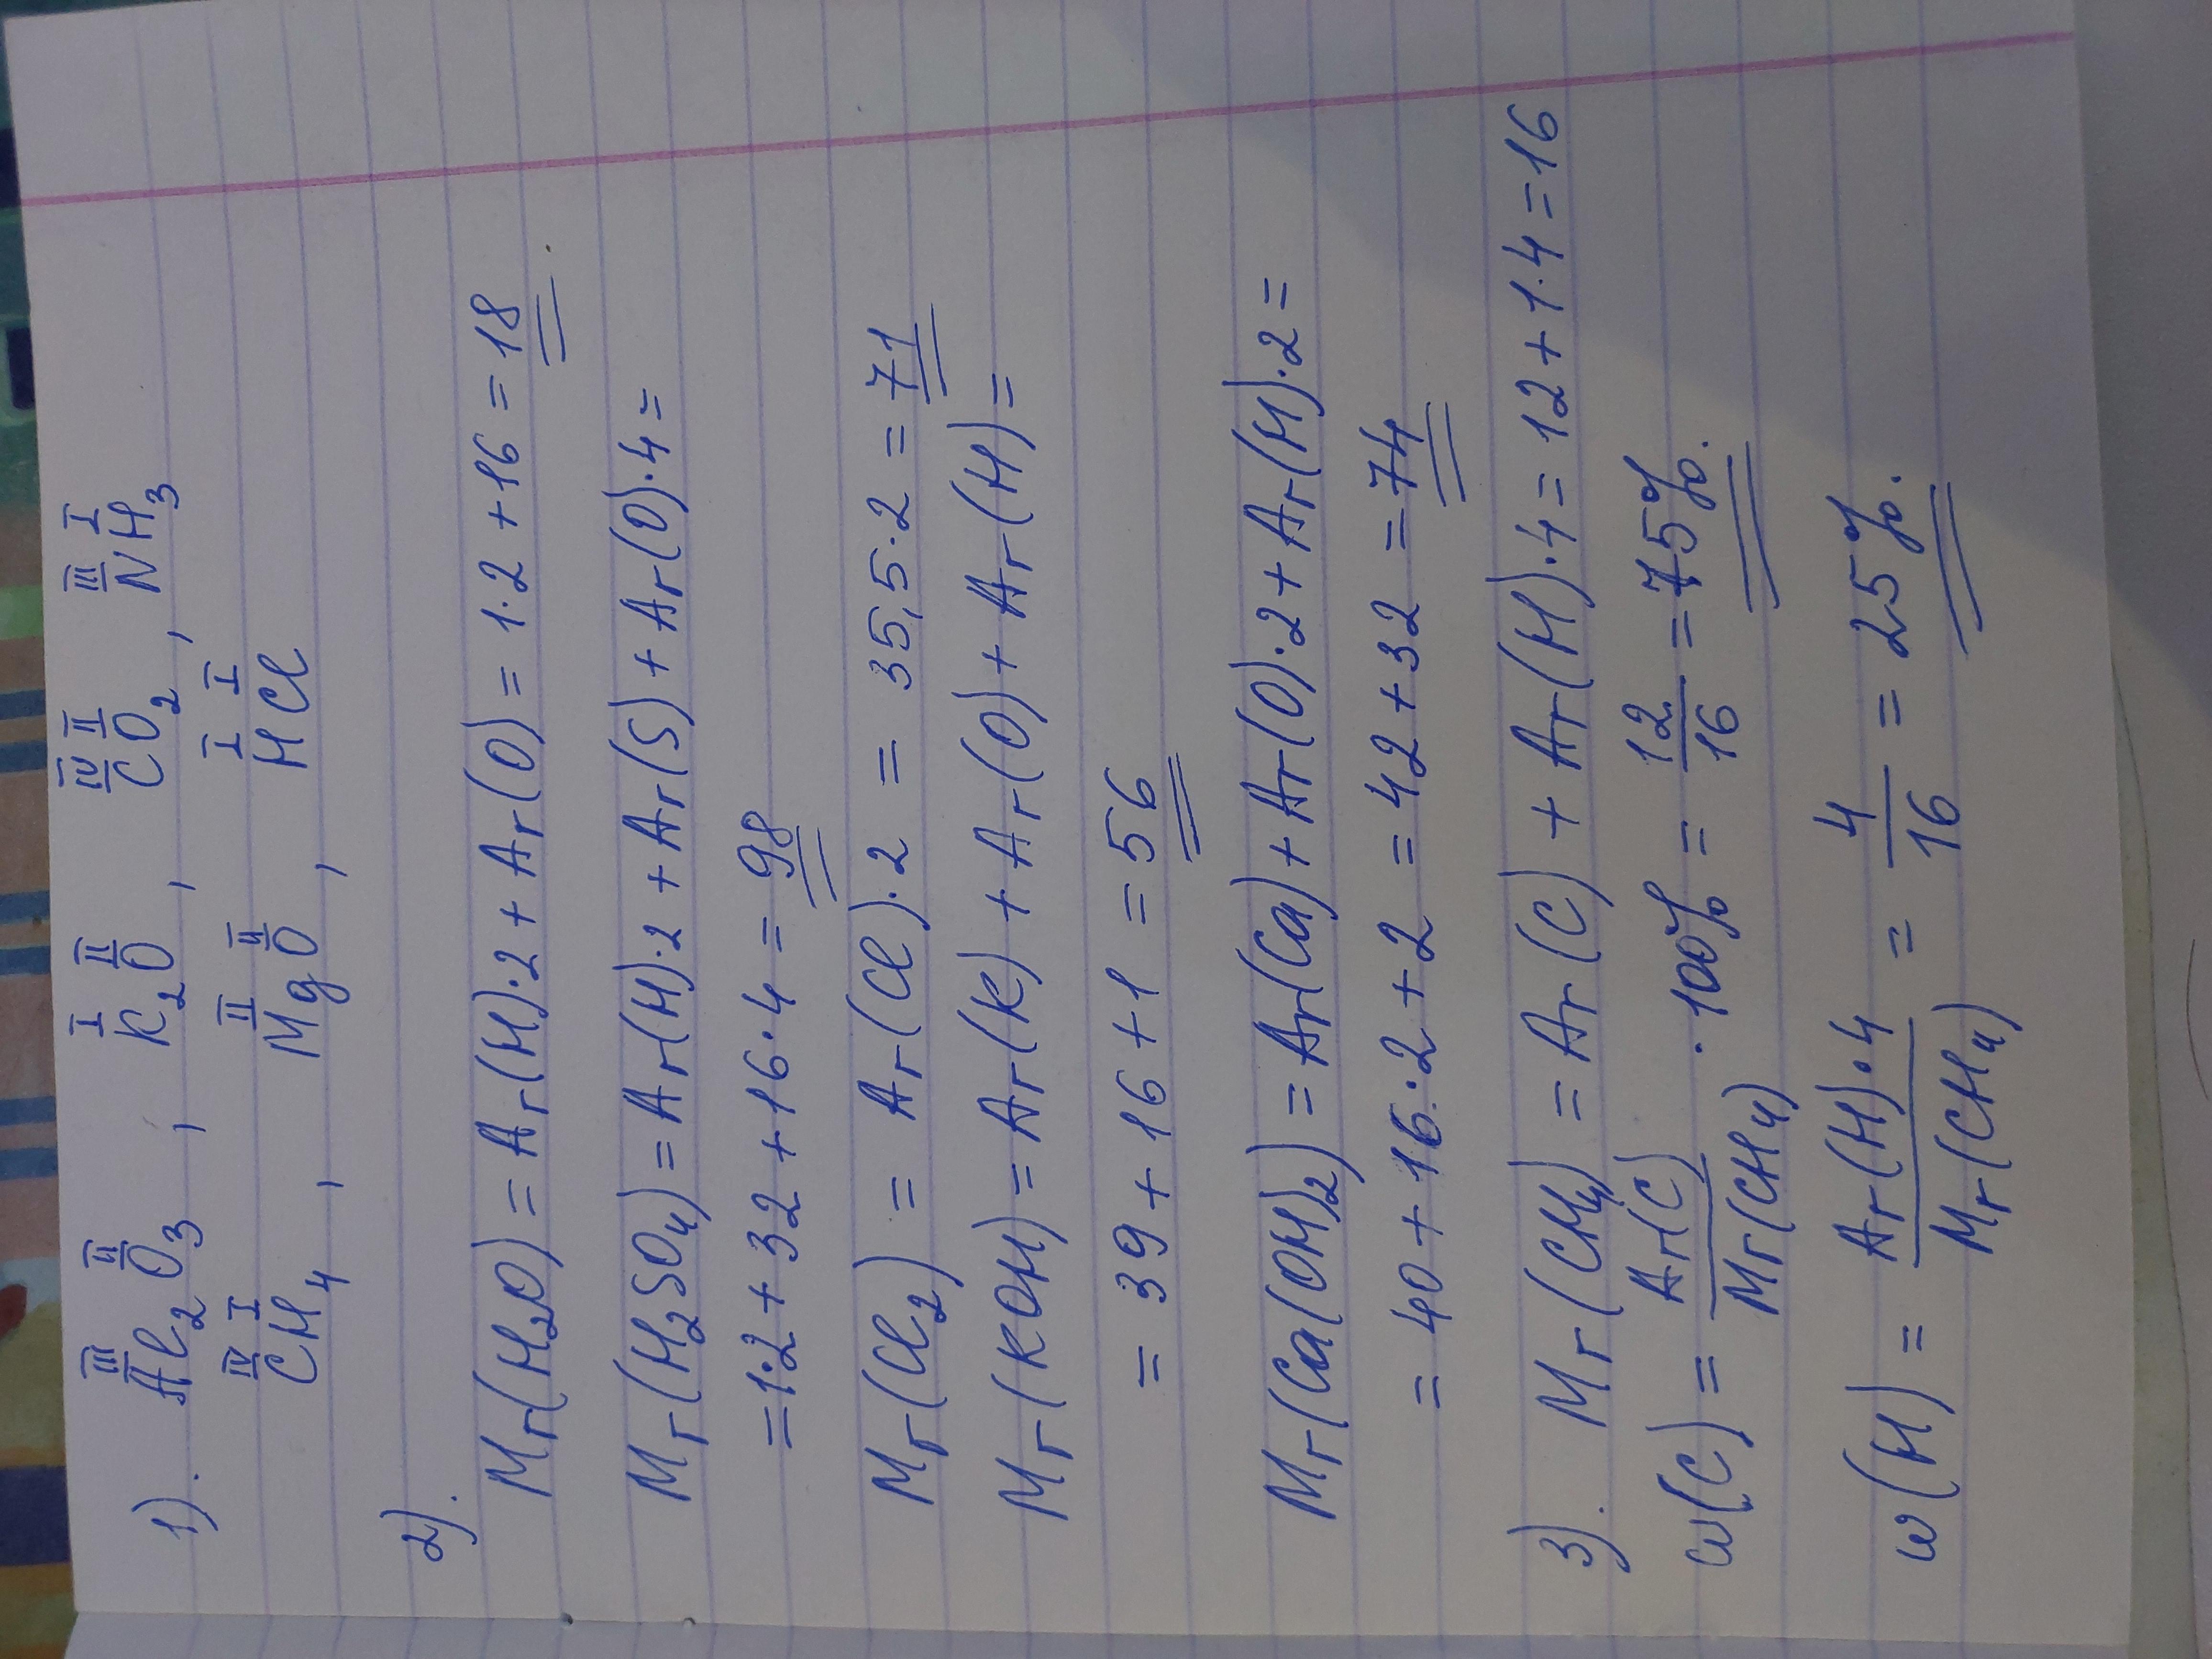 1). III II I II IV II III I
Al₂O₃, K₂O, CO₂, NH₃
IV I II II I I
CH₄, MgO, HCl
2).
Mr(H₂O) = Ar(H)·2 + Ar(O) = 1·2 + 16 = 18.
Mr(H₂SO₄) = Ar(H)·2 + Ar(S) + Ar(O)·4 =
= 1·2 + 32 + 16·4 = 98
Mr(Cl₂) = Ar(Cl)·2 = 35,5·2 = 71
Mr(KOH) = Ar(K) + Ar(O) + Ar(H) =
= 39 + 16 + 1 = 56
Mr(Ca(OH)₂) = Ar(Ca) + Ar(O)·2 + Ar(H)·2 =
= 40 + 16·2 + 2 = 42 + 32 = 74
3). Mr(CH₄) = Ar(C) + Ar(H)·4 = 12 + 1·4 = 16
w(C) = Ar(C)/Mr(CH₄) · 100% = 12/16 = 75%.
w(H) = Ar(H)·4/Mr(CH₄) = 4/16 = 25%.